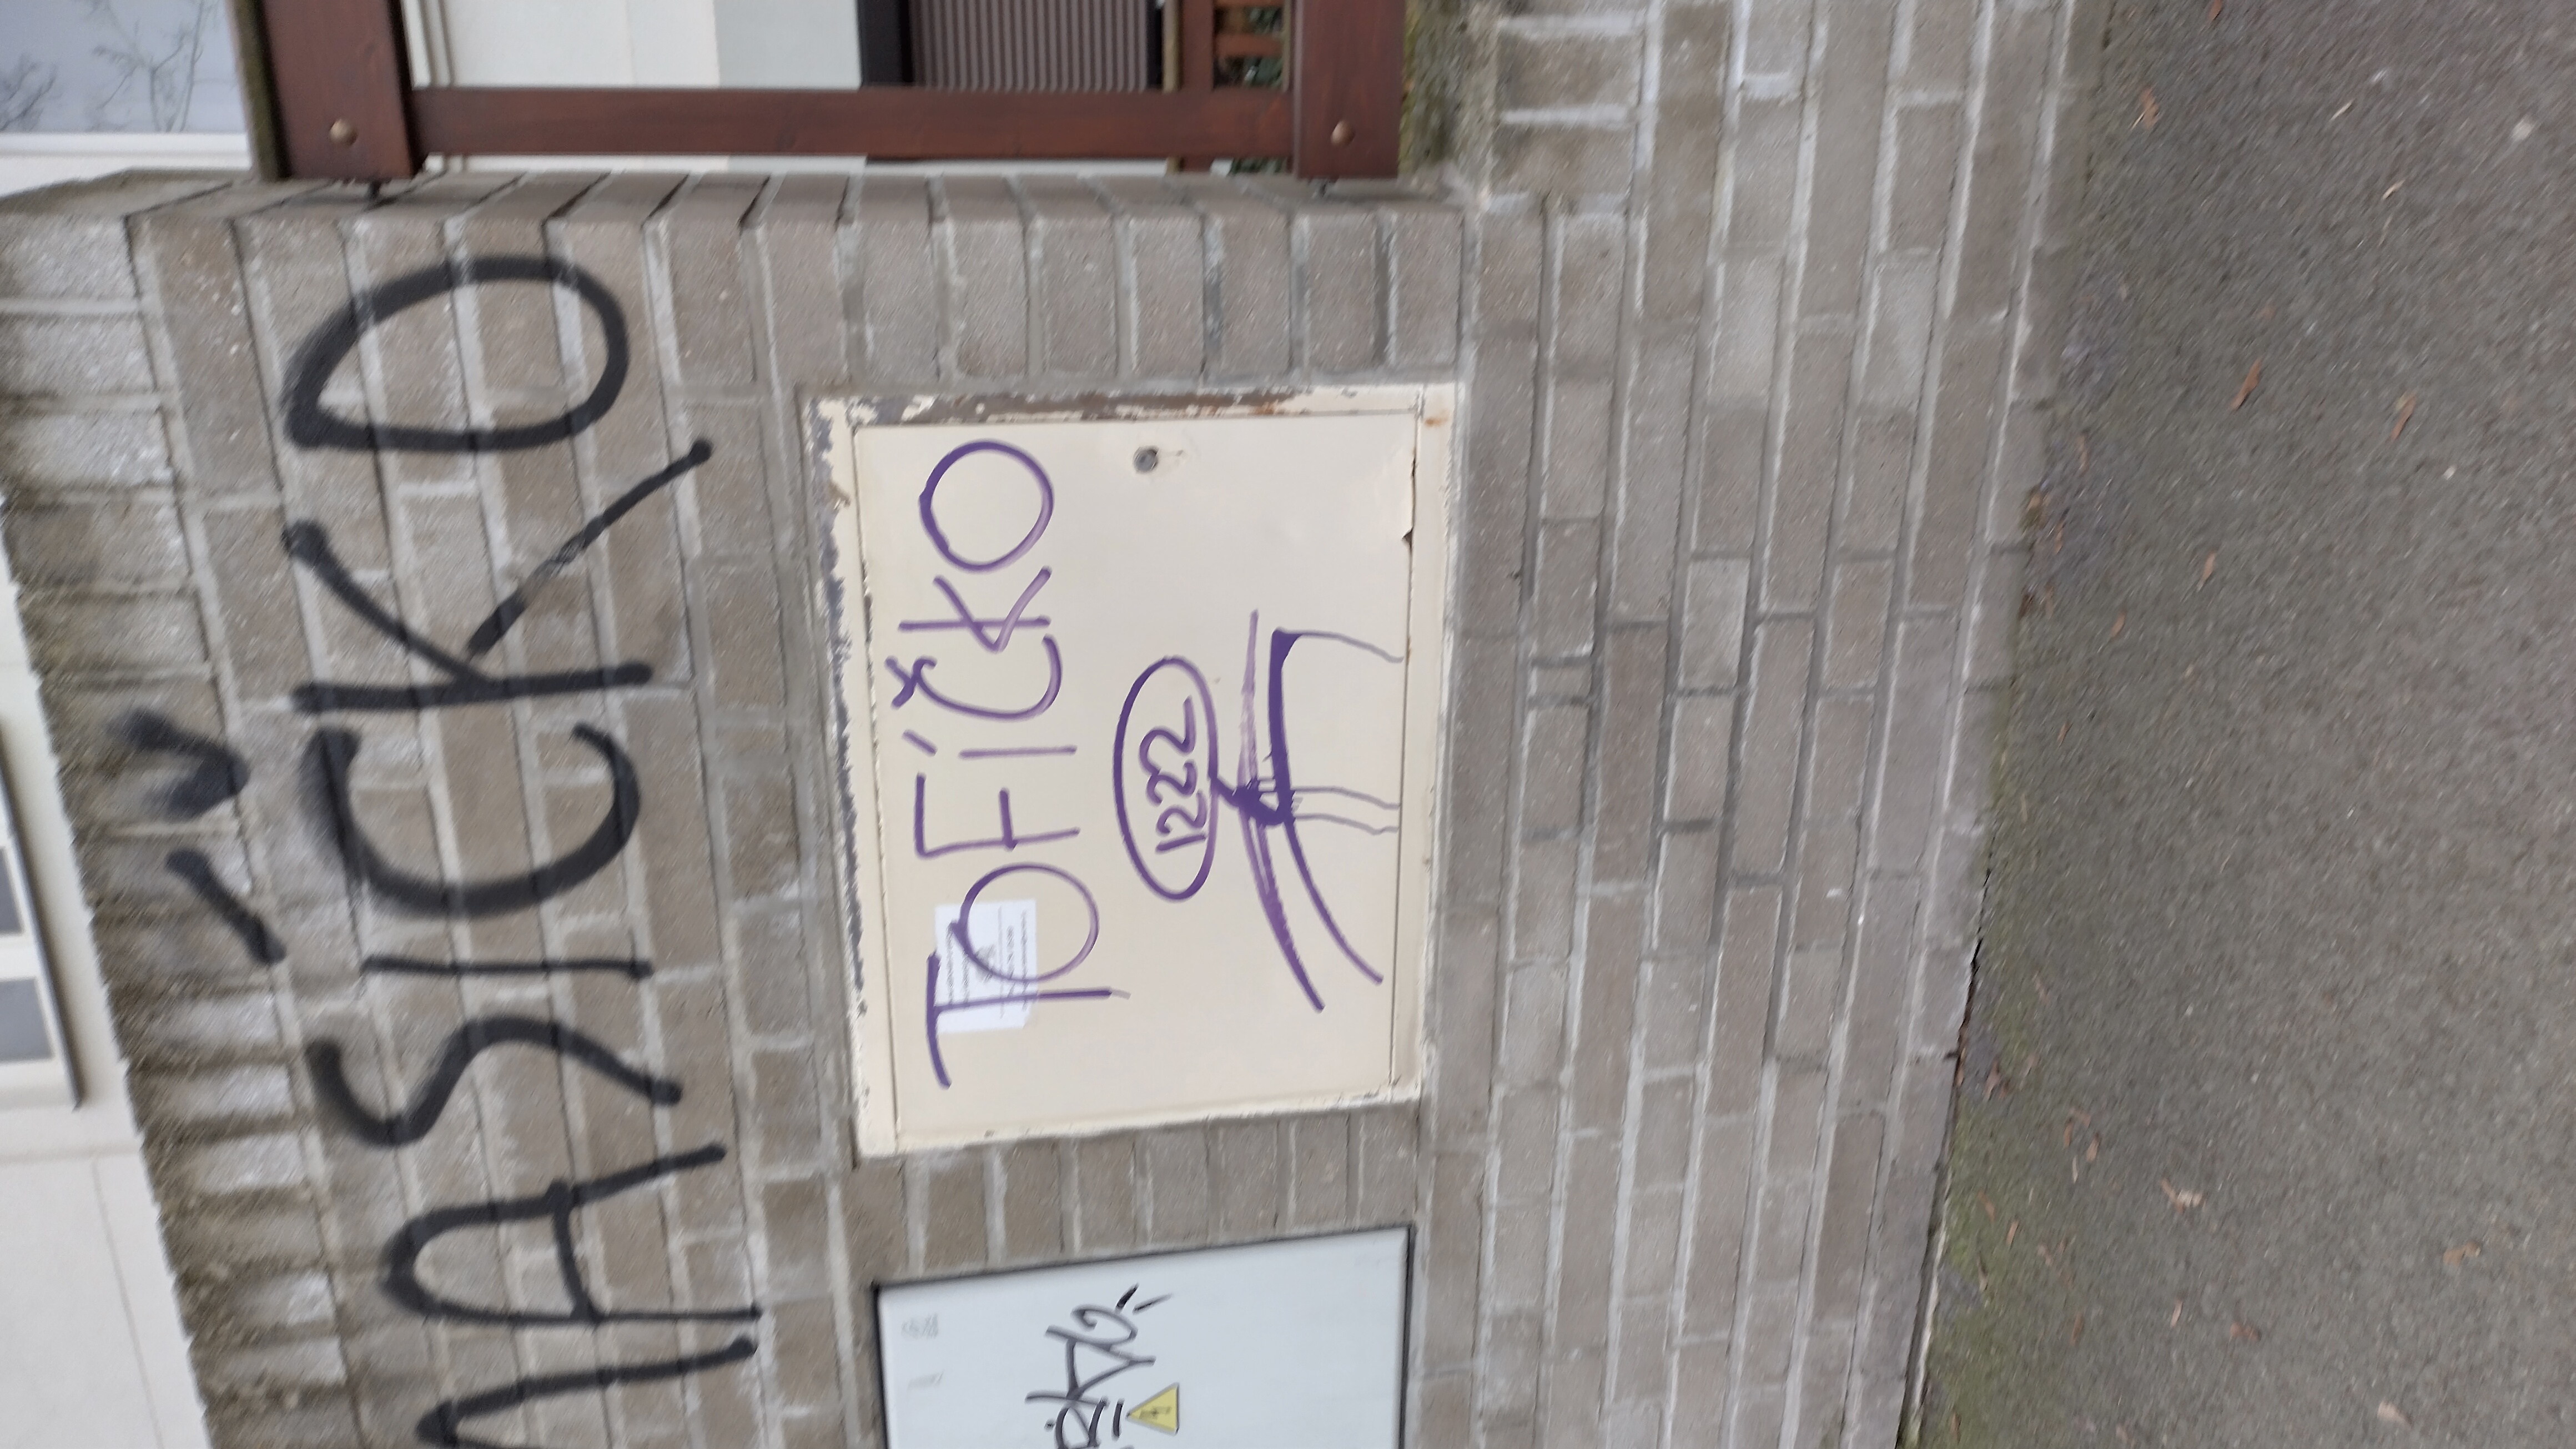 MASÍČKO
TOFÍČKO
1222